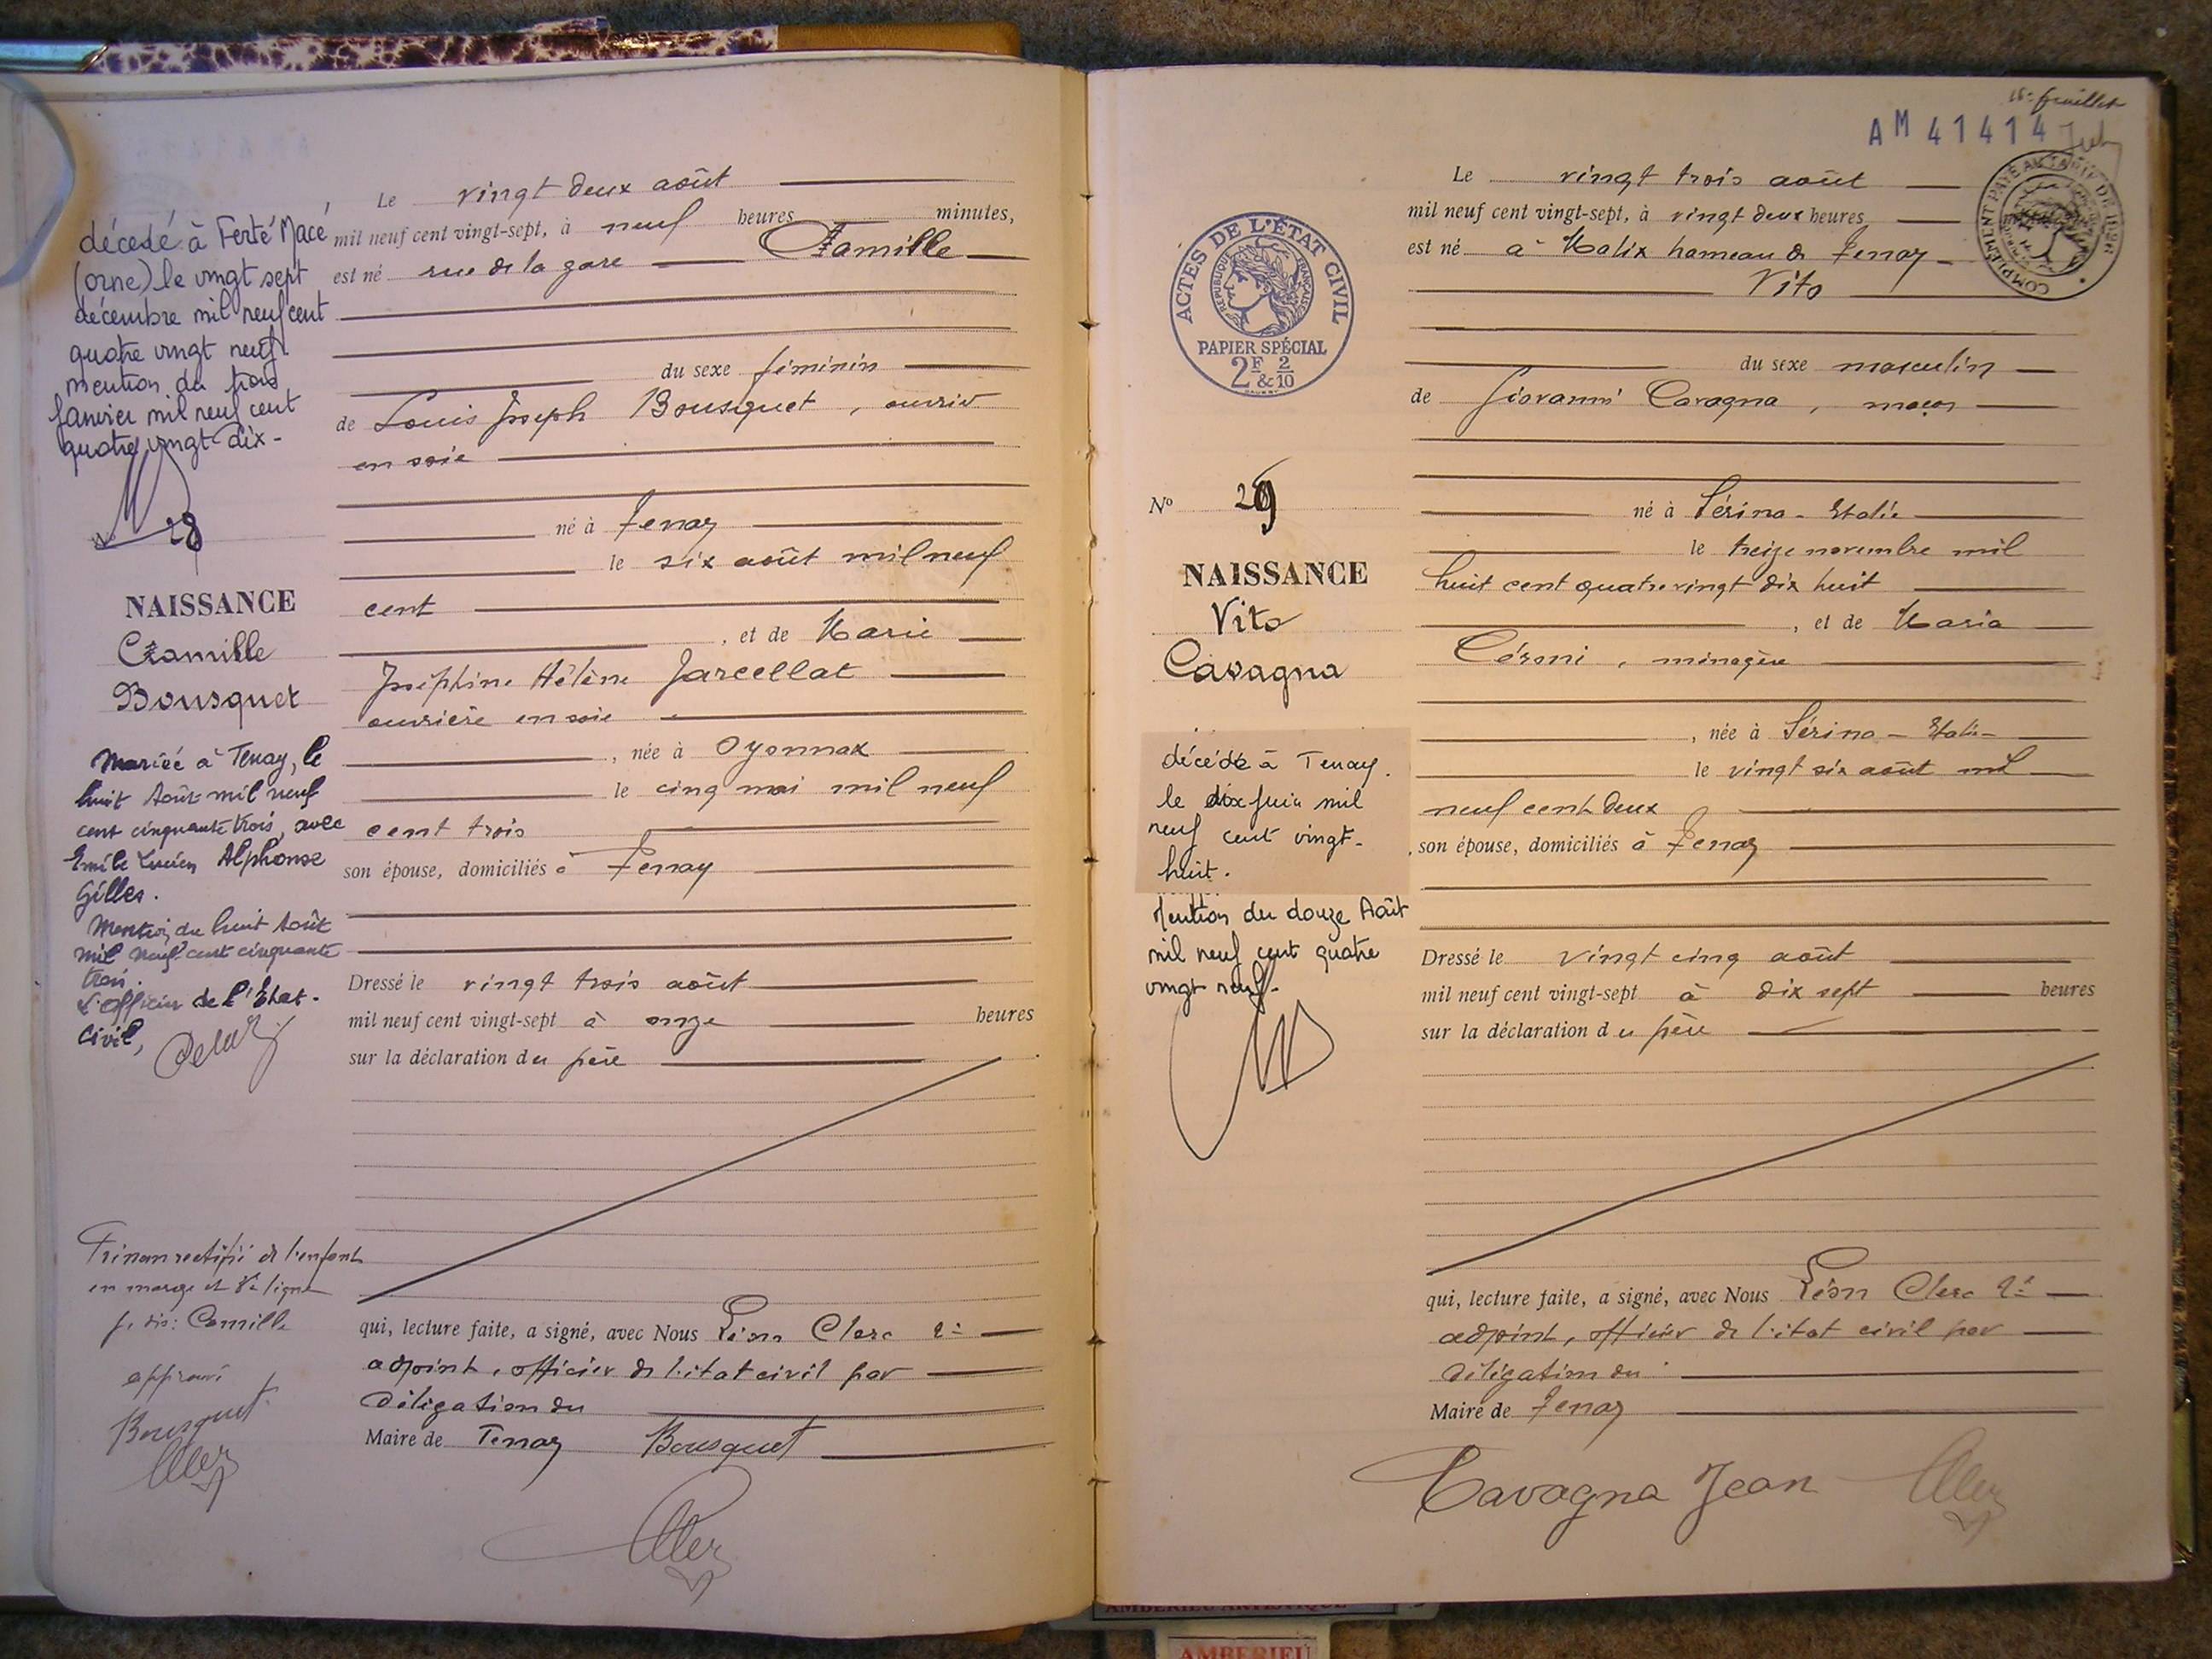 décedé à Ferté Macé
(orne) le vingt sept
décembre mil neuf cent
quatre vingt neuf
mention du trois
Janvier mil neuf cent
quatre vingt-dix-
N 28
NAISSANCE
Camille
Bousquet
Mariée à Tenay, le
huit Août mil neuf
cent cinquante trois, avec
Emile Lucien Alphonse
Gilles.
Mention du huit Août
mil neuf cent cinquante
trois.
L'officier de l'Etat-
Civil,
Prénom rectifié de l'enfant
en marge et 2e ligne
je dis: Camille
approuvé
Bousquet
Le vingt deux août
mil neuf cent vingt-sept, à neuf heures minutes,
est né rue de la gare Camille
du sexe féminin
de Louis Joseph Bousquet, ouvrier
en soie
né à Tenay
le six août mil neuf
cent
, et de Marie
Joséphine Hélène Jarcellat
ouvrière en soie
, née à Oyonnax
le cinq mai mil neuf
cent trois
son épouse, domiciliés à Tenay
Dressé le vingt trois août
mil neuf cent vingt-sept à onze heures
sur la déclaration du père
qui, lecture faite, a signé, avec Nous Léon Clerc 2e
adjoint, officier de l'état civil par
délégation du
Maire de Tenay Bousquet
Clerc
16e feuillet
AM 41414
COMPLÉMENT PAYÉ AU TARIF DE
ACTES DE L'ÉTAT CIVIL
RÉPUBLIQUE FRANÇAISE
PAPIER SPÉCIAL
2F & 2/10
No 29
NAISSANCE
Vito
Cavagna
décédé à Tenay.
le dix juin mil
neuf cent vingt-
huit.
Mention du douze Août
mil neuf cent quatre
vingt neuf-
Le vingt trois août
mil neuf cent vingt-sept, à vingt deux heures
est né à Malix hameau de Tenay
Vito
du sexe masculin
de Giovanni Cavagna, maçon
né à Sérina - Italie
le treize novembre mil
huit cent quatre vingt dix huit
, et de Maria
Céroni, ménagère
, née à Sérina - Italie
le vingt six août mil
neuf cent deux
son épouse, domiciliés à Tenay
Dressé le vingt cinq août
mil neuf cent vingt-sept à dix sept heures
sur la déclaration du père
qui, lecture faite, a signé, avec Nous Léon Clerc 2e
adjoint, officier de l'état civil par
délégation du
Maire de Tenay
Cavagna Jean Clerc
AMBERIEU ARTISTIQUE
AMBERIEU